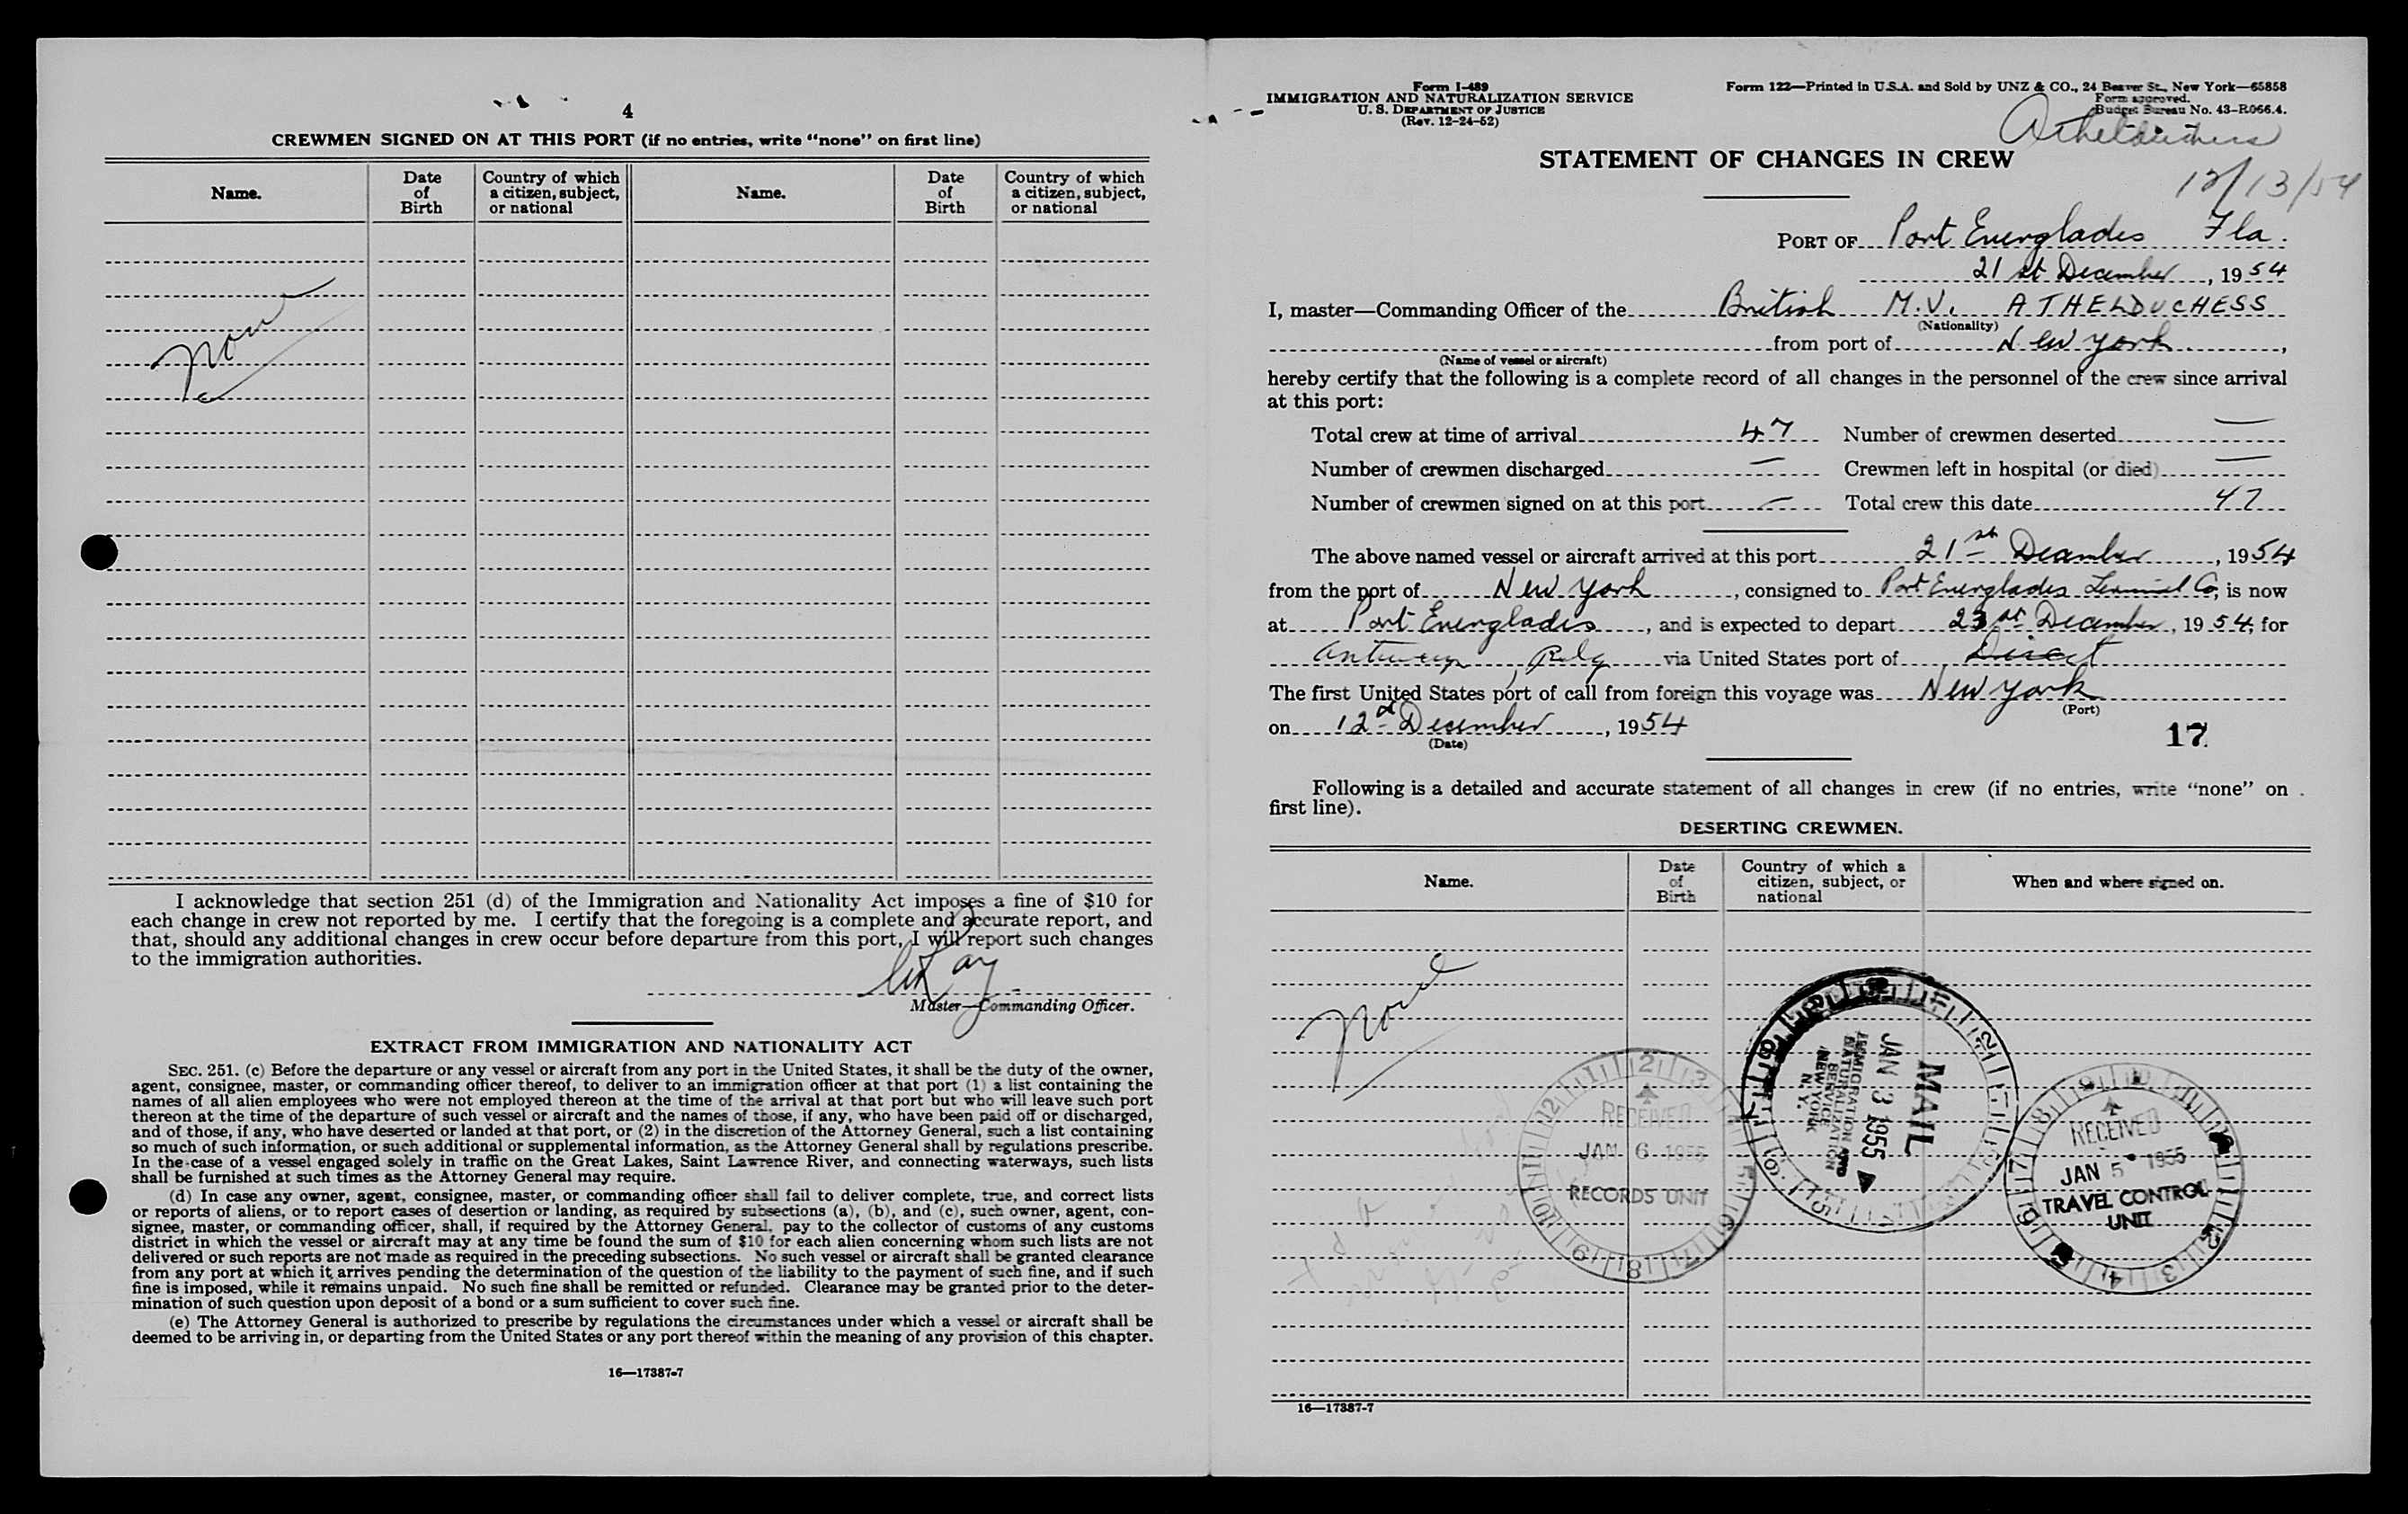 4
CREWMEN SIGNED ON AT THIS PORT (if no entries, write “none” on first line)
Name. Date of Birth Country of which a citizen, subject, or national Name. Date of Birth Country of which a citizen, subject, or national
None
I acknowledge that section 251 (d) of the Immigration and Nationality Act imposes a fine of $10 for
each change in crew not reported by me. I certify that the foregoing is a complete and accurate report, and
that, should any additional changes in crew occur before departure from this port, I will report such changes
to the immigration authorities.
Master—Commanding Officer.
EXTRACT FROM IMMIGRATION AND NATIONALITY ACT
SEC. 251. (c) Before the departure or any vessel or aircraft from any port in the United States, it shall be the duty of the owner,
agent, consignee, master, or commanding officer thereof, to deliver to an immigration officer at that port (1) a list containing the
names of all alien employees who were not employed thereon at the time of the arrival at that port but who will leave such port
thereon at the time of the departure of such vessel or aircraft and the names of those, if any, who have been paid off or discharged,
and of those, if any, who have deserted or landed at that port, or (2) in the discretion of the Attorney General, such a list containing
so much of such information, or such additional or supplemental information, as the Attorney General shall by regulations prescribe.
In the case of a vessel engaged solely in traffic on the Great Lakes, Saint Lawrence River, and connecting waterways, such lists
shall be furnished at such times as the Attorney General may require.
(d) In case any owner, agent, consignee, master, or commanding officer shall fail to deliver complete, true, and correct lists
or reports of aliens, or to report cases of desertion or landing, as required by subsections (a), (b), and (c), such owner, agent, con-
signee, master, or commanding officer, shall, if required by the Attorney General, pay to the collector of customs of any customs
district in which the vessel or aircraft may at any time be found the sum of $10 for each alien concerning whom such lists are not
delivered or such reports are not made as required in the preceding subsections. No such vessel or aircraft shall be granted clearance
from any port at which it arrives pending the determination of the question of the liability to the payment of such fine, and if such
fine is imposed, while it remains unpaid. No such fine shall be remitted or refunded. Clearance may be granted prior to the deter-
mination of such question upon deposit of a bond or a sum sufficient to cover such fine.
(e) The Attorney General is authorized to prescribe by regulations the circumstances under which a vessel or aircraft shall be
deemed to be arriving in, or departing from the United States or any port thereof within the meaning of any provision of this chapter.
16—17387-7
Form I-489
IMMIGRATION AND NATURALIZATION SERVICE
U. S. DEPARTMENT OF JUSTICE
(Rev. 12-24-52)
Form 122—Printed in U.S.A. and Sold by UNZ & CO., 24 Beaver St., New York—65858
Form approved.
Budget Bureau No. 43-R066.4.
Athelduchess
12/13/54
STATEMENT OF CHANGES IN CREW
PORT OF Port Everglades Fla.
21st December, 1954
I, master—Commanding Officer of the British M.V. ATHELDUCHESS
(Nationality)
from port of New York,
(Name of vessel or aircraft)
hereby certify that the following is a complete record of all changes in the personnel of the crew since arrival
at this port:
Total crew at time of arrival 47 Number of crewmen deserted —
Number of crewmen discharged — Crewmen left in hospital (or died) —
Number of crewmen signed on at this port — Total crew this date 47
The above named vessel or aircraft arrived at this port 21st December, 1954
from the port of New York, consigned to Port Everglades Terminal Co, is now
at Port Everglades, and is expected to depart 23 December, 1954, for
Antwerp, Belg via United States port of Direct
The first United States port of call from foreign this voyage was New York
(Port)
on 12 December, 1954
(Date)
17
Following is a detailed and accurate statement of all changes in crew (if no entries, write “none” on
first line).
DESERTING CREWMEN.
Name. Date of Birth Country of which a citizen, subject, or national When and where signed on.
None
RECEIVED
JAN 6 1955
RECORDS UNIT
MAIL
JAN 3 1955
IMMIGRATION AND
NATURALIZATION
SERVICE
NEW YORK
N. Y.
RECEIVED
JAN 5 1955
TRAVEL CONTROL
UNIT
16—17387-7